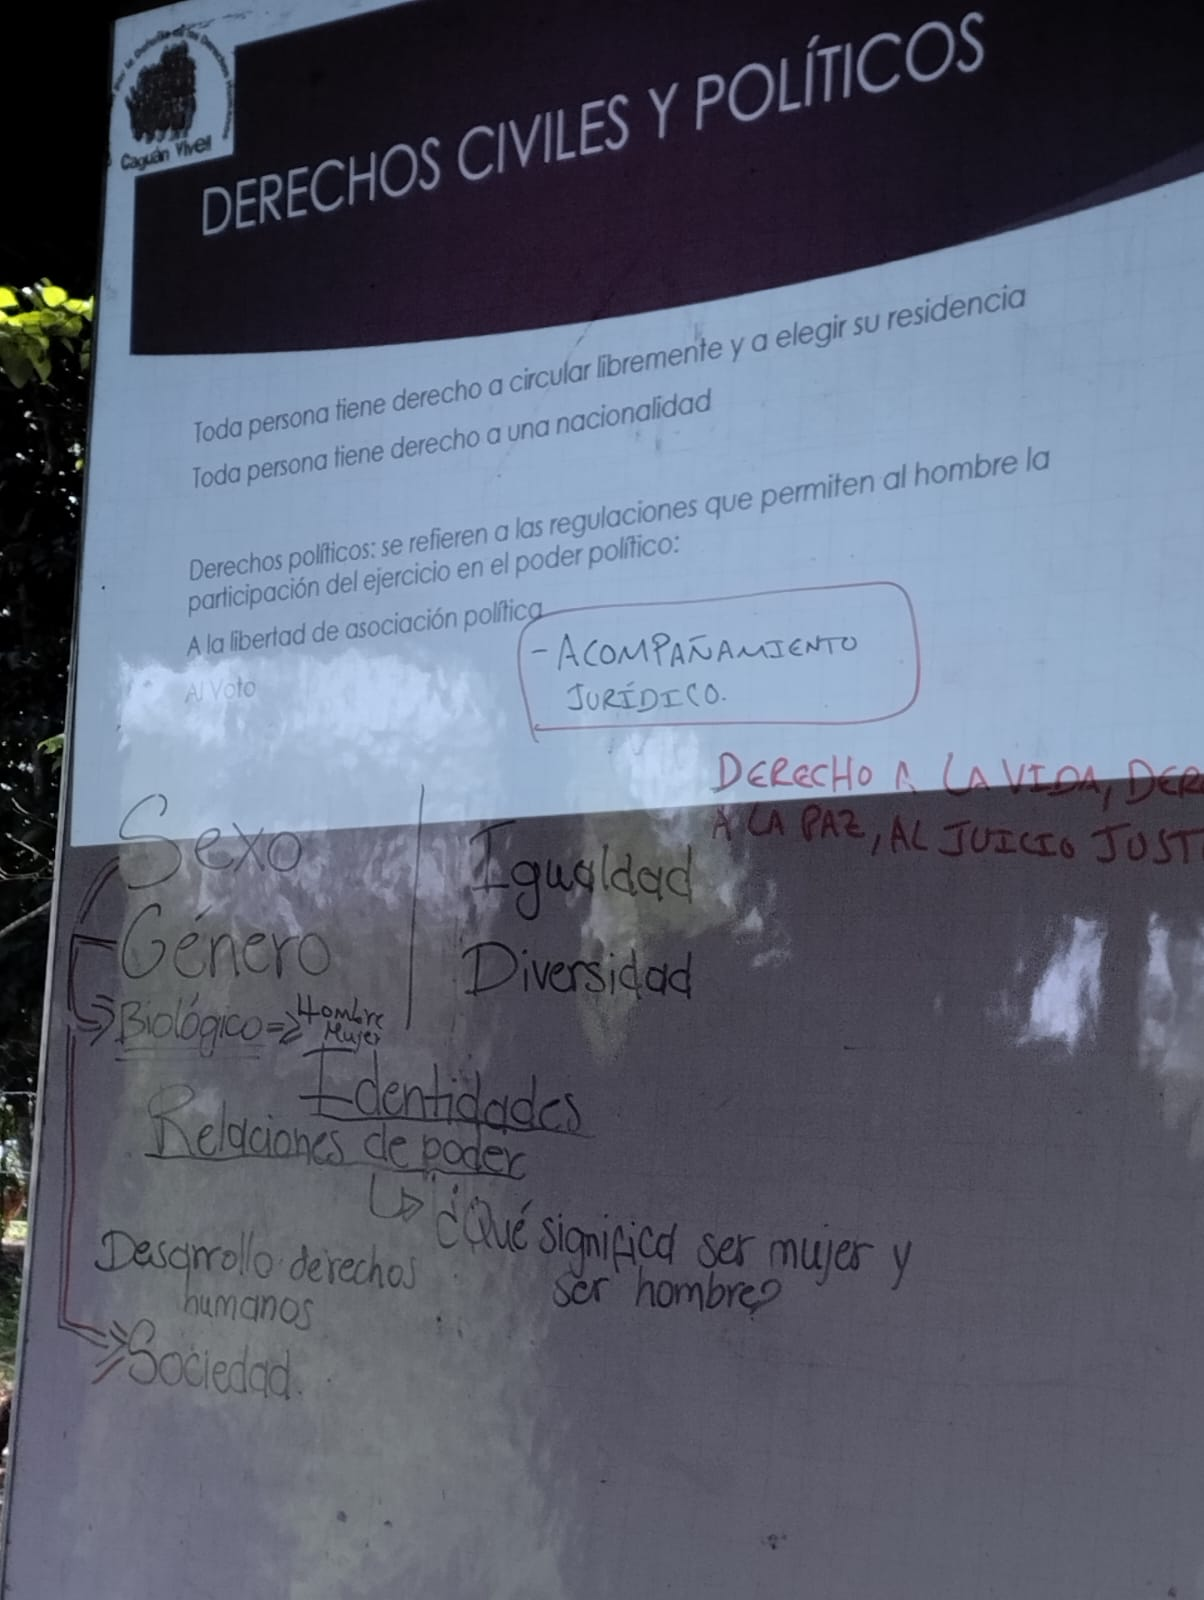 Caguán Vive!!
DERECHOS CIVILES Y POLÍTICOS
Toda persona tiene derecho a circular libremente y a elegir su residencia
Toda persona tiene derecho a una nacionalidad
Derechos políticos: se refieren a las regulaciones que permiten al hombre la
participación del ejercicio en el poder político:
A la libertad de asociación política
Al Voto
- ACOMPAÑAMIENTO
JURÍDICO.
DERECHO A LA VIDA,
A LA PAZ, AL JUICIO
Sexo
Igualdad
Género
Diversidad
Biológico => Hombre
Mujer
Identidades
Relaciones de poder
¿Qué significa ser mujer y
ser hombre?
Desarrollo derechos
humanos
Sociedad.